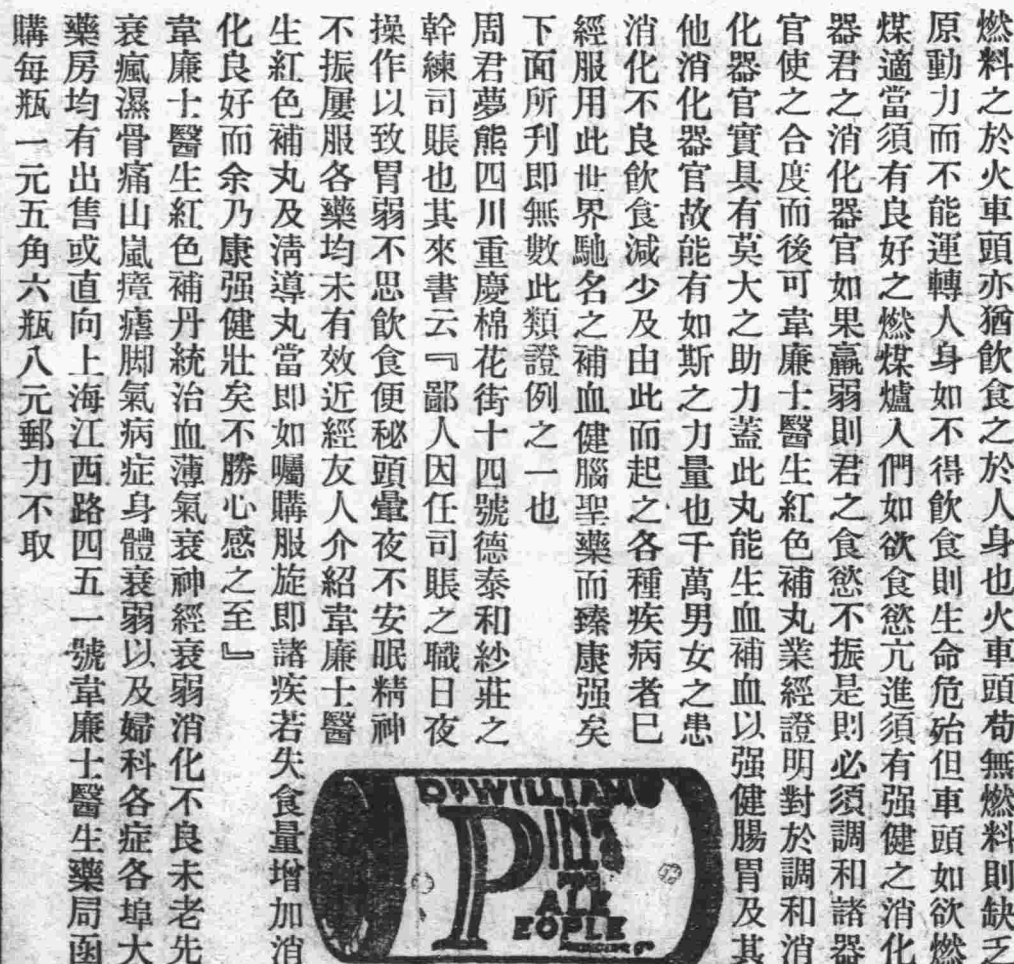 燃料之於火車頭亦猶飲食之於人身也火車頭苟無燃料則缺乏
原動力而不能運轉人身如不得飲食則生命危殆但車頭如欲燃
煤適當須有良好之燃煤爐人們如欲食慾亢進須有强健之消化
器君之消化器官如果羸弱則君之食慾不振是則必須調和諸器
官使之合度而後可韋廉士醫生紅色補丸業經證明對於調和消
化器官實具有莫大之助力蓋此丸能生血補血以强健腸胃及其
他消化器官故能有如斯之力量也千萬男女之患
消化不良飲食減少及由此而起之各種疾病者已
經服用此世界馳名之補血健腦聖藥而臻康强矣
下面所刋即無數此類證例之一也
周君夢熊四川重慶棉花街十四號德泰和紗莊之
幹練司賬也其來書云『鄙人因任司賬之職日夜
操作以致胃弱不思飲食便秘頭暈夜不安眠精神
不振屢服各藥均未有效近經友人介紹韋廉士醫
生紅色補丸及淸導丸當即如囑購服旋即諸疾若失食量增加消
化良好而余乃康强健壯矣不勝心感之至』
韋廉士醫生紅色補丹統治血薄氣衰神經衰弱消化不良未老先
衰瘋濕骨痛山嵐瘴瘧脚氣病症身體衰弱以及婦科各症各埠大
藥房均有出售或直向上海江西路四五一號韋廉士醫生藥局函
購每瓶一元五角六瓶八元郵力不取
DR WILLIAMS
PINK
PILLS
FOR
PALE
PEOPLE